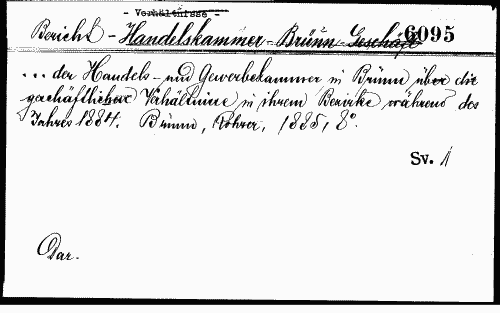 - Verhältnisse -
Bericht - Handelskammer - Brünn - Geschäft 6095
... der Handels- und Gewerbekammer in Brünn über die
geschäftlichen Verhältnisse in ihrem Bezirke während des
Jahres 1884. Brünn, Rohrer, 1885, 8°.
Sv. 1
Dar.